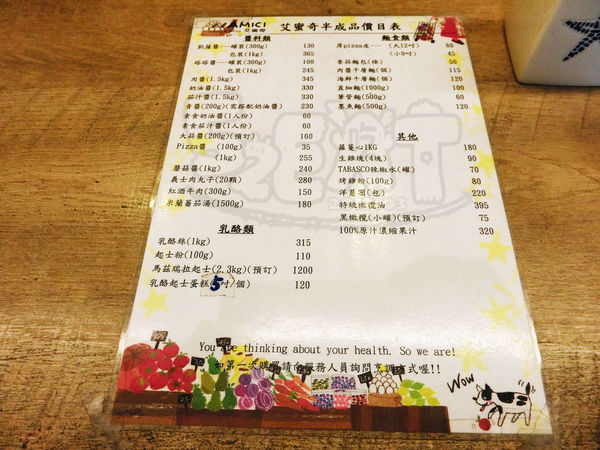 AMICI
艾蜜奇
艾蜜奇半成品價目表
醬料類
凱薩醬──罐裝(300g) 130
包裝(1kg) 365
塔塔醬──罐裝(300g) 100
包裝(1kg) 245
肉醬(1.5kg) 345
奶油醬(1.5kg) 330
茄汁醬(1.5kg) 330
青醬(200g)(需搭配奶油醬) 230
素食奶油醬(1人份) 60
素食茄汁醬(1人份) 60
大蒜醬(200g)(預訂) 160
Pizza醬 (100g) 35
(1kg) 255
蘑菇醬(1kg) 240
義士肉丸子(20顆) 280
紅酒牛肉(300g) 150
米蘭蕃茄湯(1500g) 180
乳酪類
乳酪絲(1kg) 315
起士粉(100g) 110
馬茲瑞拉起士(2.3kg)(預訂) 1200
乳酪起士蛋糕(5吋/個) 120
麵食類
厚pizza皮── (大12吋) 60
(小9吋) 45
香蒜麵包(條) 50
肉醬千層麵(個) 115
海鮮千層麵(個) 120
直細麵(1000g) 100
筆管麵(500g) 60
墨魚麵(500g) 120
其他
蘿蔓心1KG 180
生雞塊(4塊) 90
TABASCO辣椒水(罐) 70
烤雞粉(100g) 80
洋蔥圈(包) 220
特級橄欖油 395
黑橄欖(小罐)(預訂) 75
100%原汁濃缩果汁 320
You are thinking about your health. So we are!
如第一次購買請向服務人員詢問烹調方式喔!!
Wow